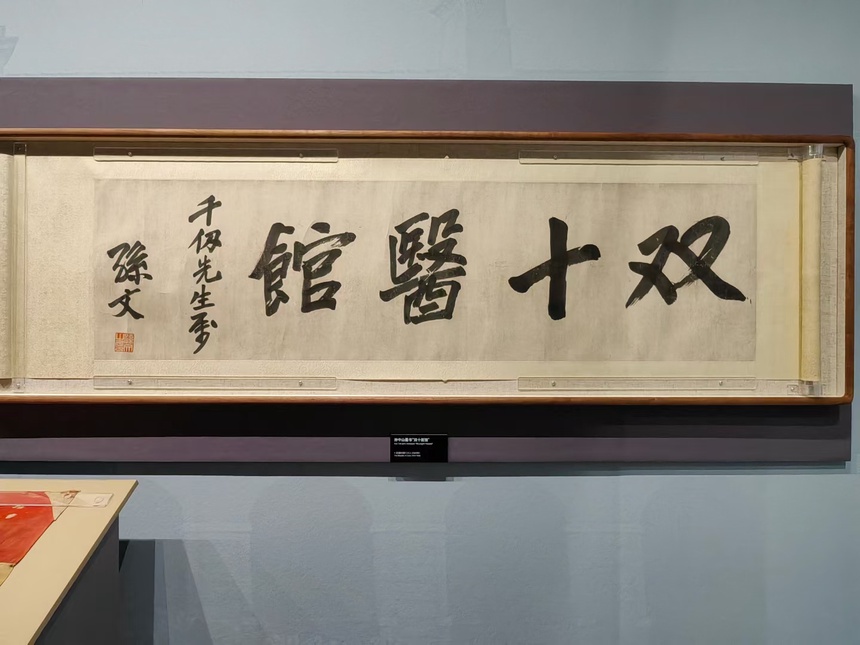 双十醫館
千仭先生属
孫文
孙中山题书“双十医馆”